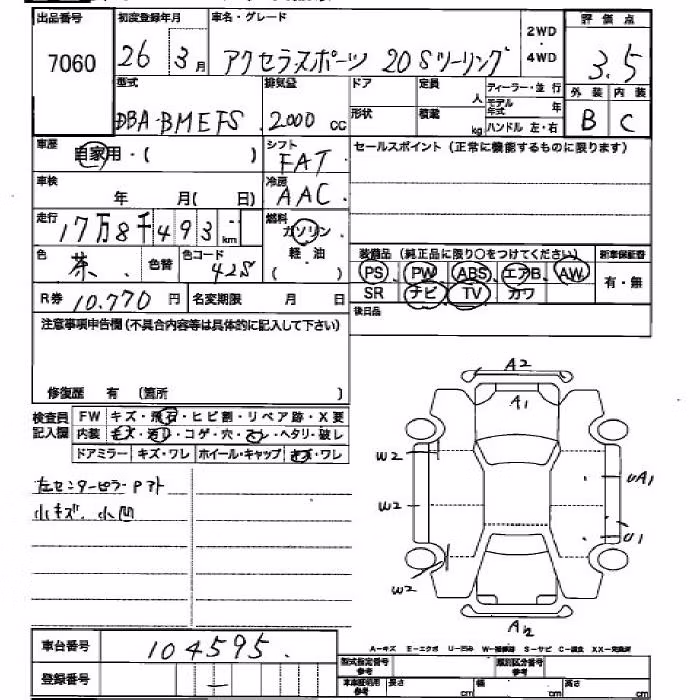 出品番号 初度登録年月 車名・グレード 2WD 評価点
7060 26 3月 アクセラスポーツ 20Sツーリング 4WD 3.5
型式 排気量 ドア 定員 人 ディーラー・並行 外装 内装
DBA-BMEFS 2000 cc 形状 積載 kg モデル年式 年 B C
ハンドル 左・右
車歴 自家用・( ) シフト FAT セールスポイント (正常に機能するものに限ります)
車検 年 月( 日) 冷房 AAC
走行 17万8千493 km 燃料 ガソリン
色 茶 色替 色コード 42S 軽・油 ( ) 装備品 (純正品に限り○をつけてください) 新車保証書
PS PW ABS エアB AW 有・無
R券 10,770 円 名変期限 月 日 SR ナビ TV カワ
注意事項申告欄 (不具合内容等は具体的に記入して下さい) 後日品
修復歴 有 (箇所 )
検査員記入欄 FW キズ・飛石・ヒビ割・リペア跡・X要
内装 キズ・汚れ・コゲ・穴・ ・ヘタリ・破レ
ドアミラー キズ・ワレ ホイール・キャップ キズ・ワレ
左センターピラーPアト
小キズ、小凹
A2
A1
W2
UA1
W2
U1
W2
A2
車台番号 104595
登録番号
A-キズ E-エクボ U-凹み W-補修跡 S-サビ C-腐食 XX-交換済
型式指定番号 参考 類別区分番号 参考
車車証明用 参考 長さ cm 幅 cm 高さ cm